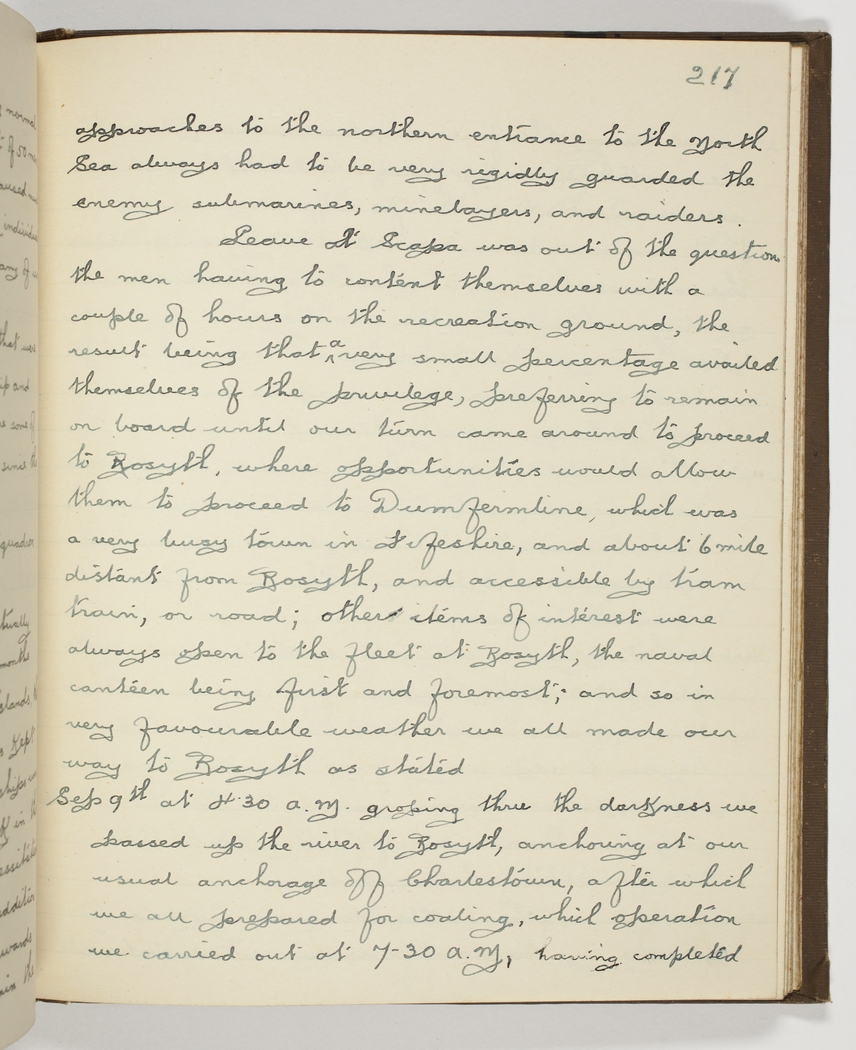 217
approaches to the northern entrance to the North
Sea always had to be very rigidly guarded the
enemy submarines, minelayers, and raiders.
Leave At Scapa was out of the question
the men having to content themselves with a
couple of hours on the recreation ground, the
result being that a very small percentage availed
themselves of the privilege, preferring to remain
on board until our turn came around to proceed
to Rosyth, where opportunities would allow
them to proceed to Dumfermline, which was
a very busy town in Fifeshire, and about 6 mile
distant from Rosyth, and accessible by tram
train, or road; other items of interest were
always open to the fleet at Rosyth, the naval
canteen being first and foremost; and so in
very favourable weather we all made our
way to Rosyth as stated
Sep 9th at 4.30 a.m. groping thru the darkness we
passed up the river to Rosyth, anchoring at our
usual anchorage off Charlestown, after which
we all prepared for coaling, which operation
we carried out at 7-30 a.m, having completed